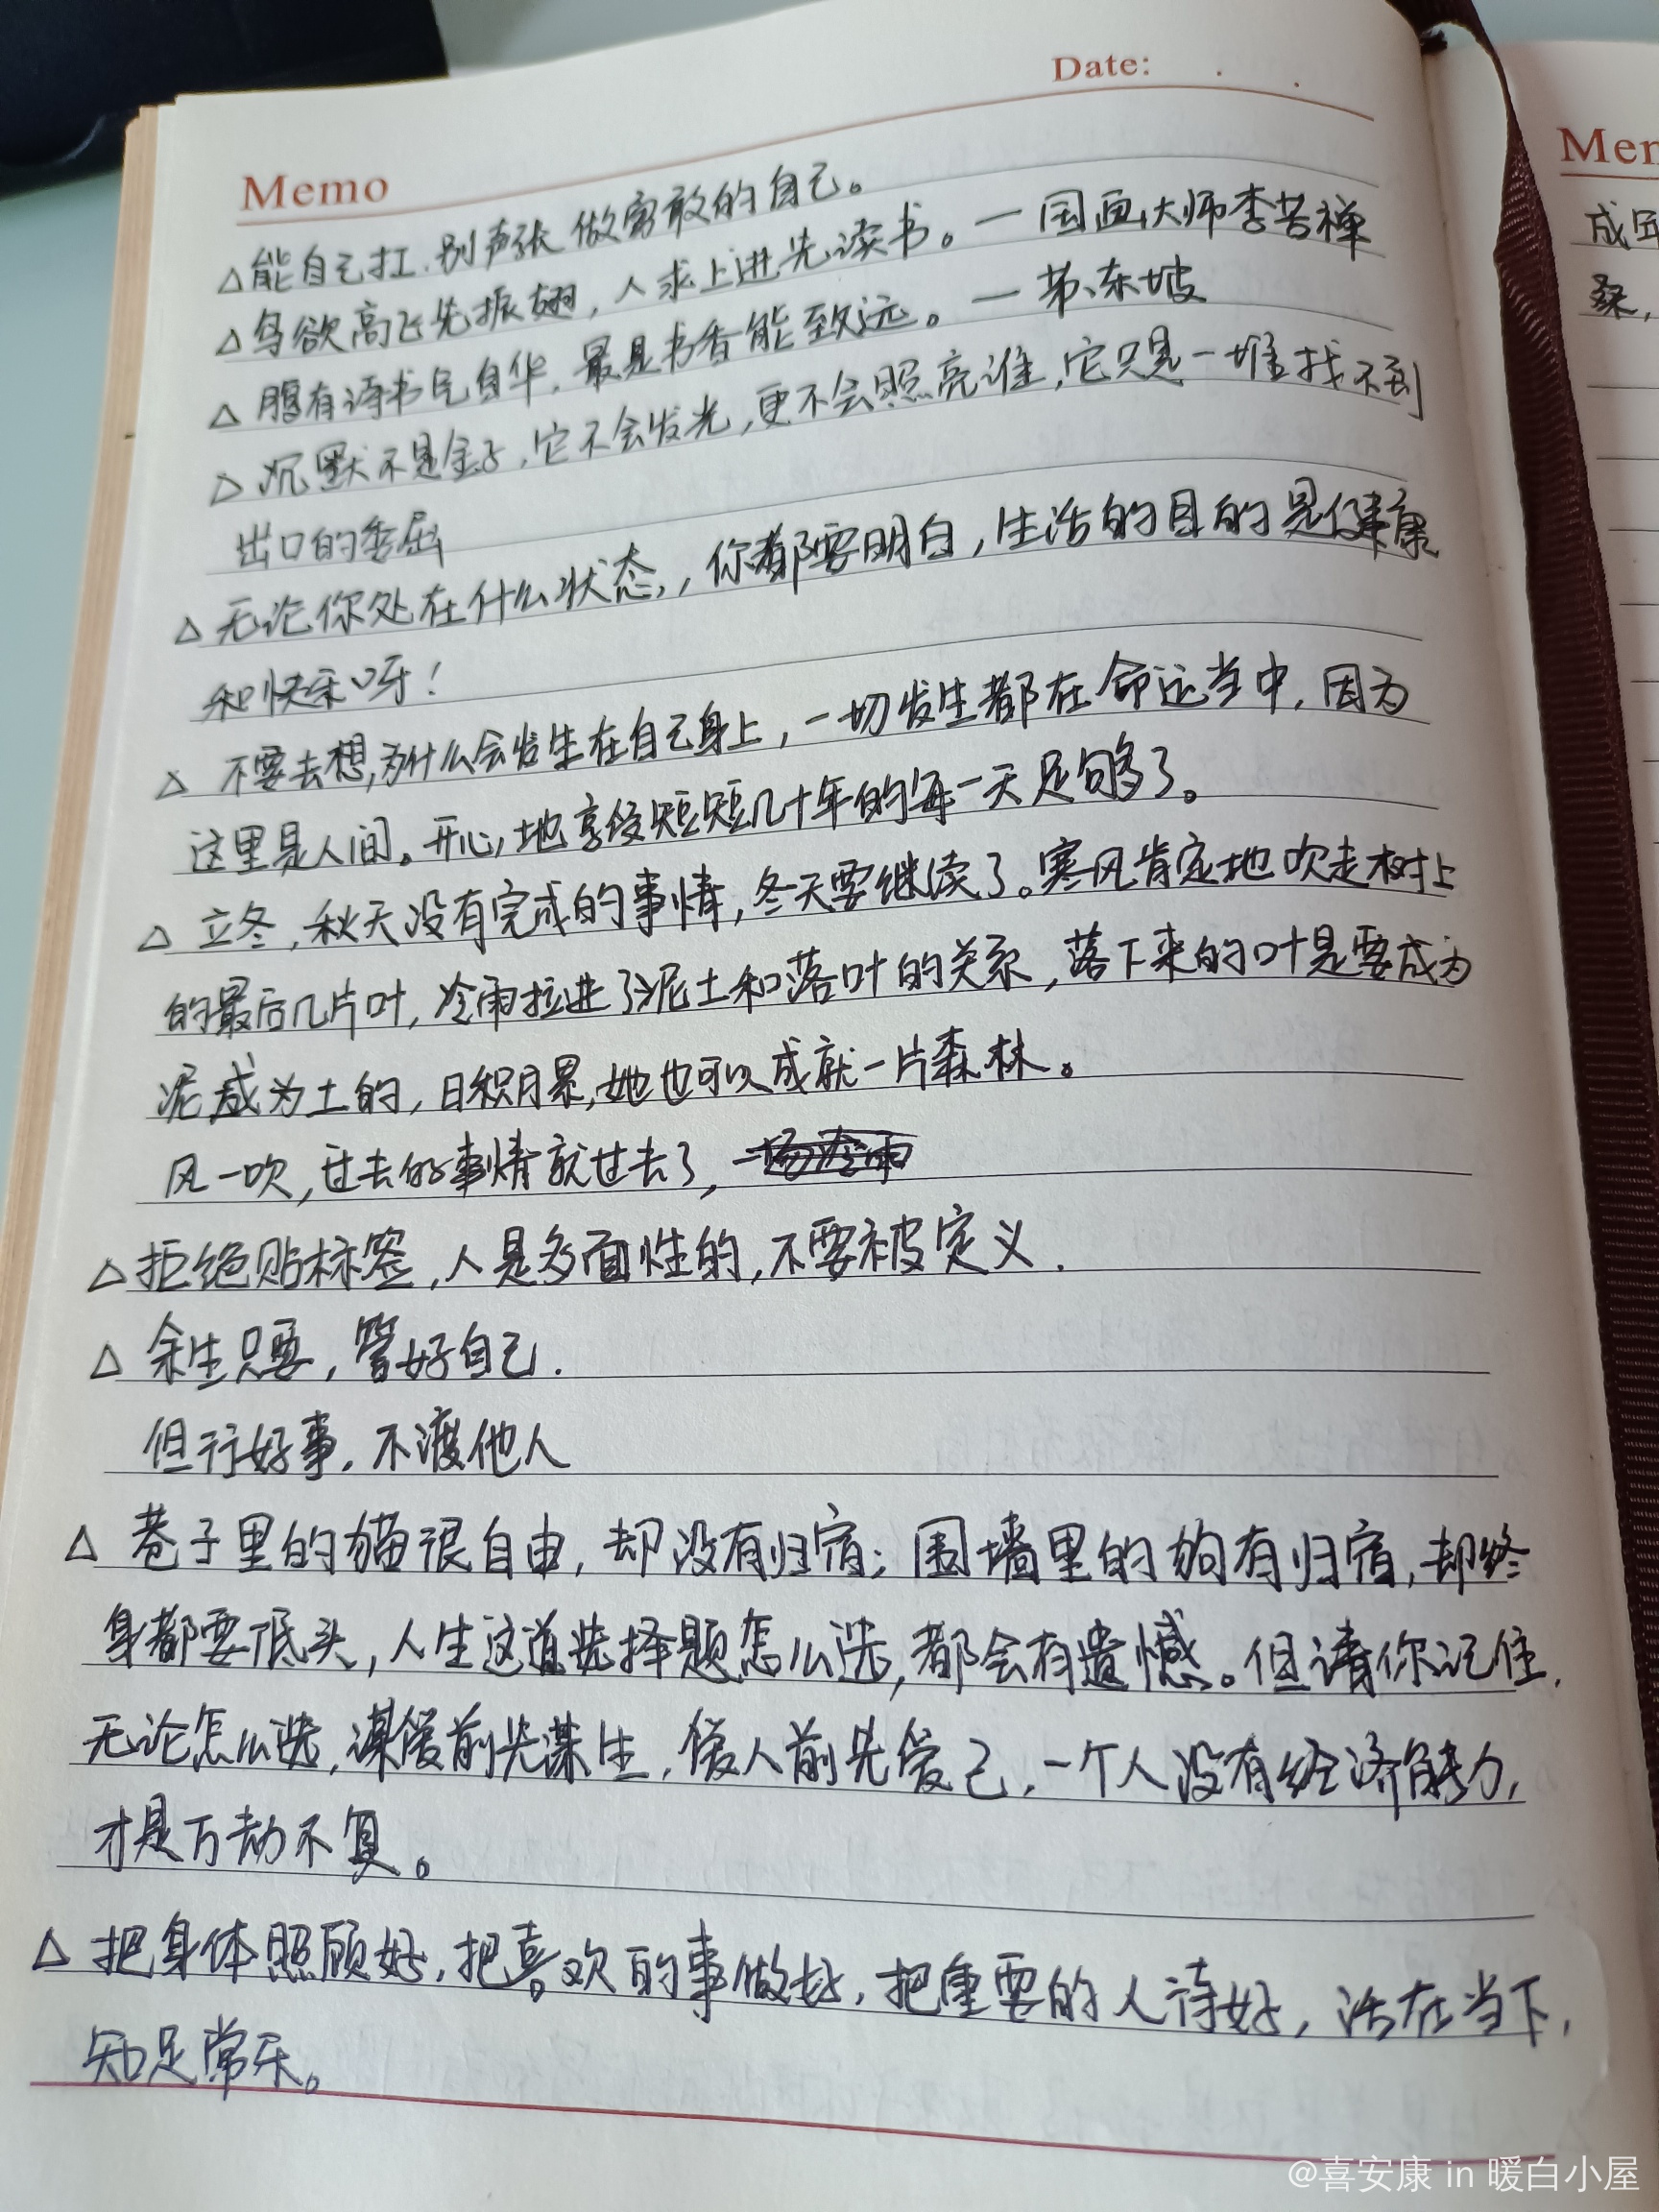 Date: . .
Memo
△能自己扛,别声张 做勇敢的自己。
△鸟欲高飞先振翅,人求上进先读书。—国画大师李苦禅
△腹有诗书气自华,最是书香能致远。—苏东坡
△沉默不是金子,它不会发光,更不会照亮谁,它只是一堆找不到
出口的委屈
△无论你处在什么状态,,你都要明白,生活的目的是健康
和快乐呀!
△不要去想,为什么会发生在自己身上,一切发生都在命运当中,因为
这里是人间。开心地享受短短几十年的每一天足够了。
△立冬,秋天没有完成的事情,冬天要继续了。寒风肯定地吹走树上
的最后几片叶,冷雨拉进了泥土和落叶的关系,落下来的叶是要成为
泥成为土的,日积月累,她也可以成就一片森林。
风一吹,过去的事情就过去了,
△拒绝贴标签,人是多面性的,不要被定义.
△余生只要,管好自己.
但行好事,不渡他人
△巷子里的猫很自由,却没有归宿;围墙里的狗有归宿,却终
身都要低头,人生这道选择题怎么选,都会有遗憾。但请你记住,
无论怎么选,谋爱前先谋生,爱人前先爱己,一个人没有经济能力,
才是万劫不复。
△把身体照顾好,把喜欢的事做好,把重要的人待好,活在当下,
知足常乐。
Mem
成年
桑,
@喜安康 in 暖白小屋